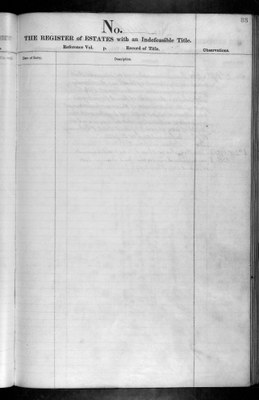 No.
THE REGISTER of ESTATES with an Indefeasible Title.
Reference Vol. p. Record of Title.
Observations
Date of Entry.
Description